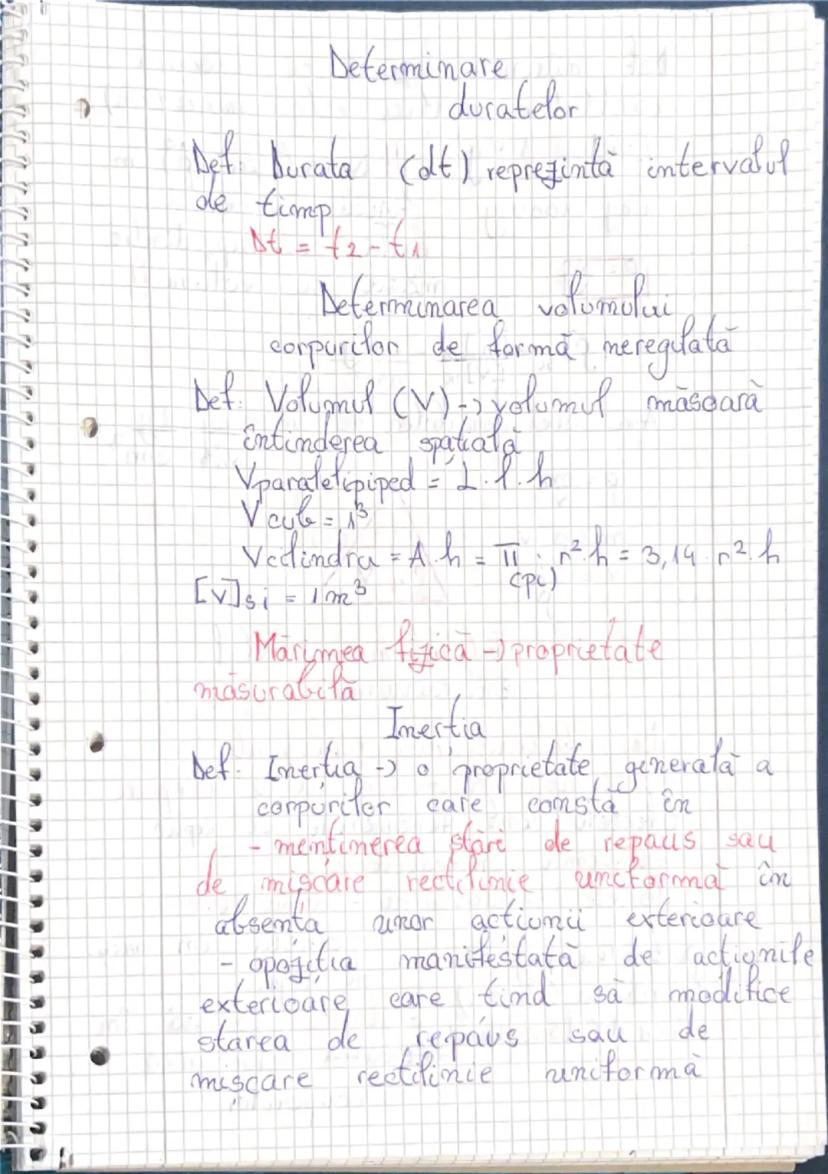 Determinare
duratelor
Def: Durata (dt) reprezintă intervalul
de timp
Δt = t2 - t1
Determinarea volumului
corpurilor de formă neregulată
Def: Volumul (V) -> volumul măsoară
întinderea spațială
Vparalelipiped = L · l · h
Vcub = l³
Vcilindru = A · h = π · r² · h = 3,14 · r² · h
(pi)
[V]si = 1 m³
Mărimea fizică -> proprietate
măsurabilă
Inertia
Def: Inerția -> o proprietate generală a
corpurilor care constă în
- menținerea stări de repaus sau
de mișcare rectilinie uniformă în
absența unor acțiunii exterioare
- opoziția manifestată de acțiunile
exterioare care tind să modifice
starea de repaus sau de
mișcare rectilinie uniformă